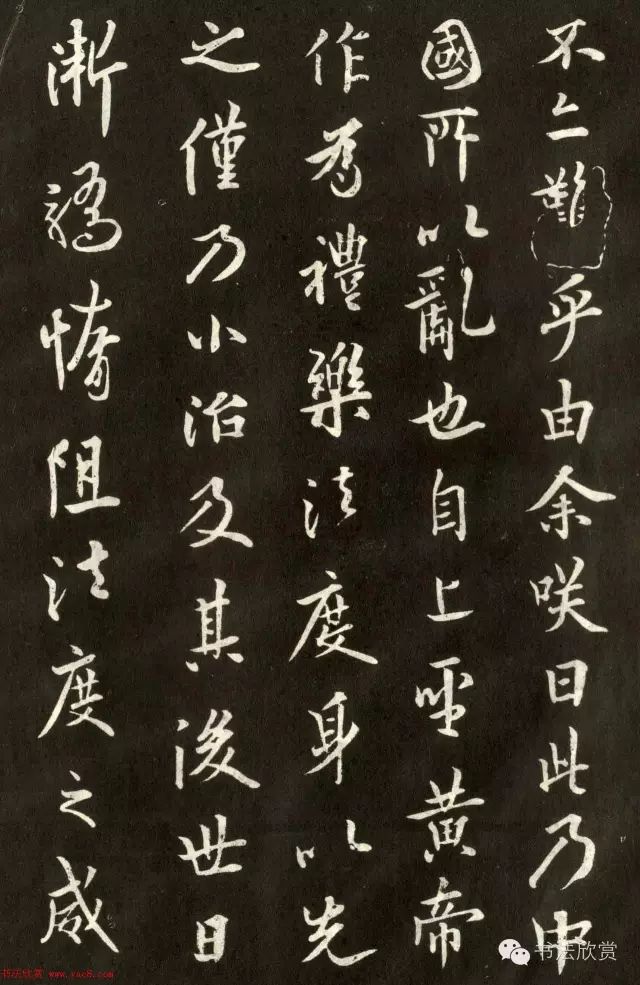 不亦難乎由余咲曰此乃中
國所以亂也自上聖黃帝
作為禮樂法度身以先
之僅乃小治及其後世日
漸驕惰阻法度之威
书法欣赏
书法欣赏 www.yac8.com